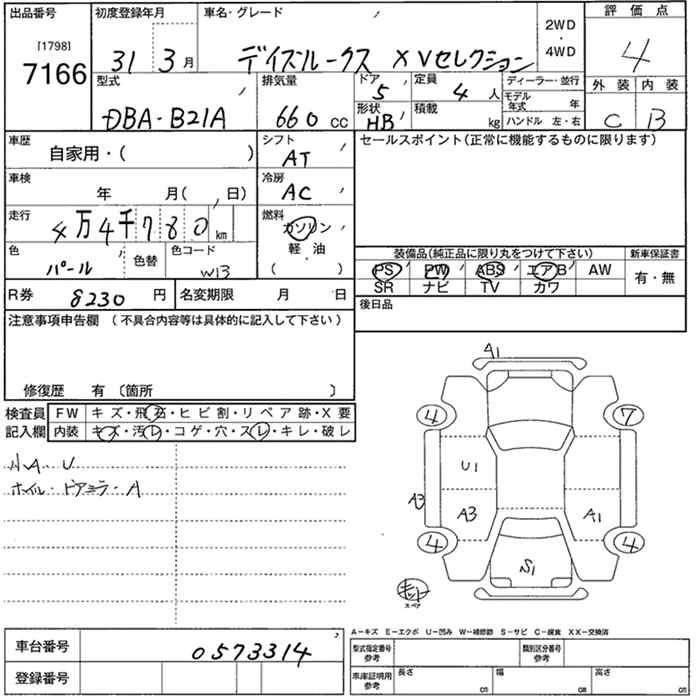 出品番号
[1798]
7166
初度登録年月
31 3月
車名・グレード
デイズルークス XVセレクション
2WD
・
4WD
評価点
4
外装 内装
C B
型式
DBA-B21A
排気量
660 CC
ドア
5
形状
HB
定員
4 人
積載
kg
ディーラー・並行
モデル年式 年
ハンドル 左・右
車歴
自家用・( )
シフト
AT
セールスポイント(正常に機能するものに限ります)
車検
年 月( , 日)
冷房
AC
走行
4万4千780km
燃料
ガソリン
軽・油
( )
色
パール
色替
色コード
W13
装備品(純正品に限り丸をつけて下さい)
PS PW ABS エアB AW
SR ナビ TV カワ
新車保証書
有・無
R券 8230 円
名変期限 月 日
後日品
注意事項申告欄 (不具合内容等は具体的に記入して下さい)
修復歴 有 〔箇所 〕
検査員
記入欄
FW キズ・飛石・ヒビ割・リペア跡・X要
内装 キズ・汚レ・コゲ・穴・スレ・キレ・破レ
小A U
ホイル・ドアミラーA
A1
4 7
U1
A3 A3 A1
4 4
S1
キット
スペア
A-キズ E-エクボ U-凹み W-補修跡 S-サビ C-腐食 XX-交換済
車台番号 0573314
登録番号
型式指定番号
参考
類別区分番号
参考
車庫証明用
参考
長さ cm
幅 cm
高さ cm